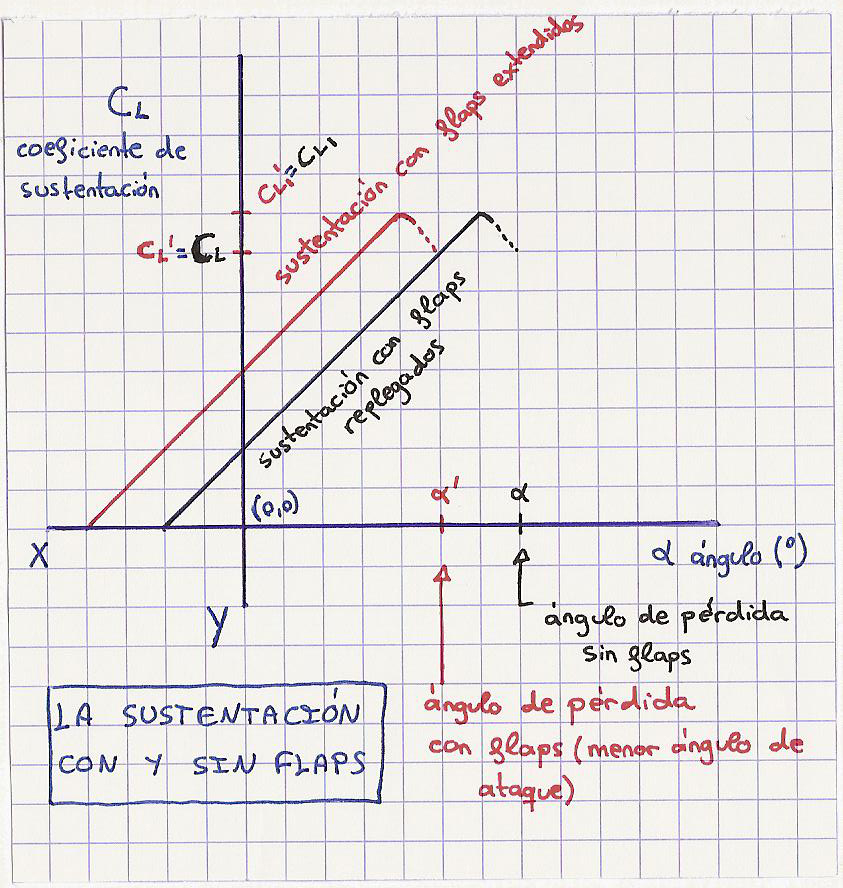 CL
coeficiente de
sustentación
CL₁'=CL₁
CL'=CL
sustentación con flaps extendidos
sustentación con flaps
replegados
(0,0)
α'
α
X
α ángulo (º)
Y
ángulo de pérdida
sin flaps
LA SUSTENTACIÓN
CON Y SIN FLAPS
ángulo de pérdida
con flaps (menor ángulo de
ataque)